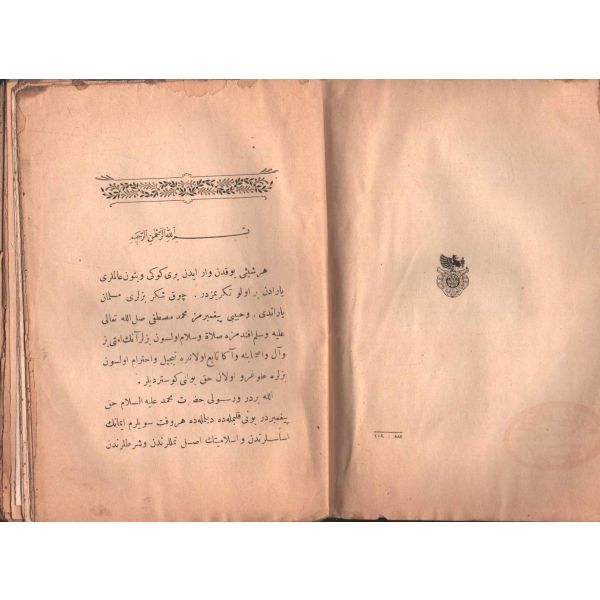 بسم الله الرحمن الرحيم
هر شیئی یوقدن وار ایدن یری کوکی و بتون عالملری
یارادن بر اولو تکریمزدر . چوق شکر بزلری مسلمان
یاراتدی . وحبیبی پیغمبرمز محمد مصطفی صل الله تعالی
علیه وسلم افندمزه صلاة وسلام اولسون بزلر آنك امتی یز
وآل واصحابنه وآکا تابع اولانلره تبجیل واحترام اولسون
بزلره طوغرو اولان حق یولنی کوستردیلر .
الله بردر ورسولی حضرت محمد علیه السلام حق
پیغمبردر بونی قلبمله ده دیلمله ده هروقت سویلرم ایمانك
اساسلرندن و اسلامیتك اصل تمللرندن وشرطلرندن